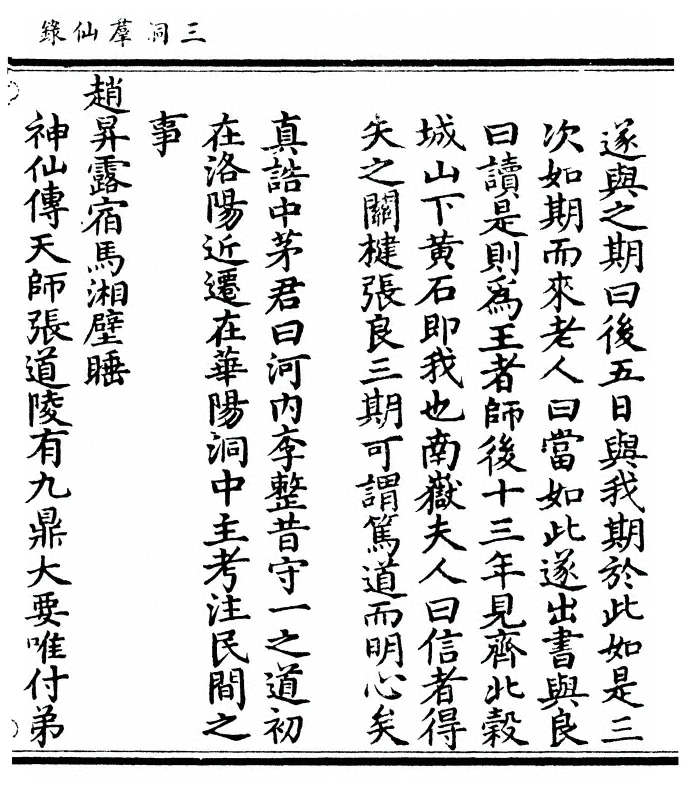 三洞羣仙錄
遂與之期曰後五日與我期於此如是三
次如期而來老人曰當如此遂出書與良
曰讀是則爲王者師後十三年見齊北榖
城山下黄石即我也南嶽夫人曰信者得
失之關楗張良三期可謂篤道而明心矣
真誥中茅君曰河内李整昔守一之道初
在洛陽近遷在華陽洞中主考注民間之
事
趙昇露宿馬湘壁睡
神仙傳天師張道陵有九鼎大要唯付弟